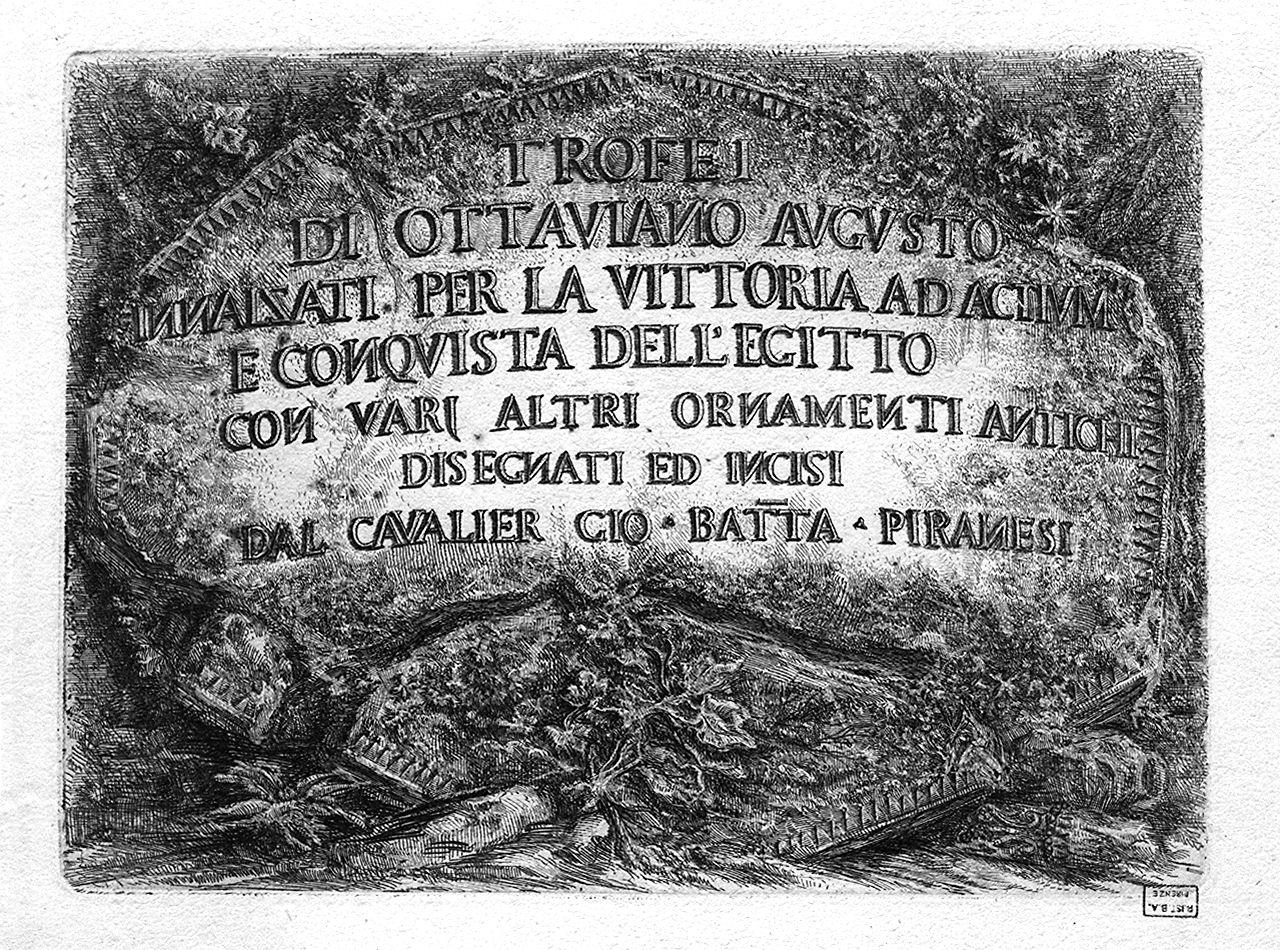 TROFEI
DI OTTAVIANO AVGVSTO
INNALZATI · PER LA VITTORIA AD ACTIVM
E CONQVISTA DELL'EGITTO
CON VARJ ALTRI ORNAMENTI ANTICHI
DISEGNATI ED INCISI
DAL CAVALIER GIO · BATTA · PIRANESI
R.IST.B.A.
FIRENZE